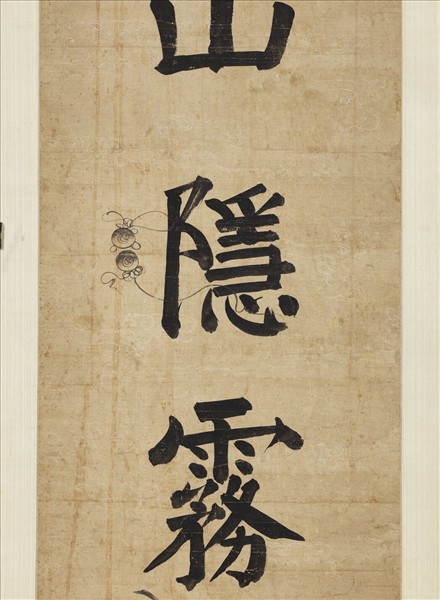 山隱霧